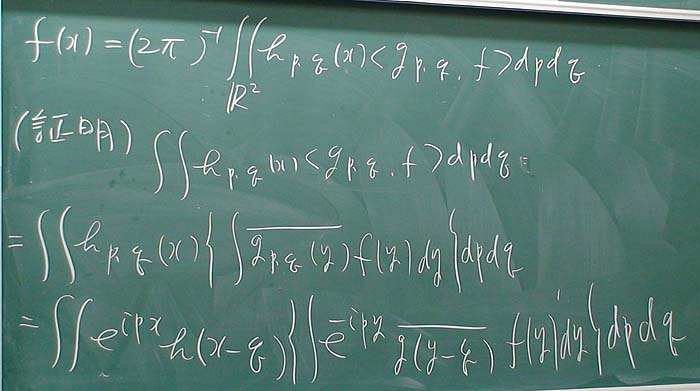 f(x) = (2π)⁻¹ ∬_{ℝ²} h_{p,q}(x) < g_{p,q}, f > dp dq
(証明) ∬ h_{p,q}(x) < g_{p,q}, f > dp dq =
= ∬ h_{p,q}(x) { ∫ \overline{g_{p,q}(y)} f(y) dy } dp dq
= ∬ e^{ipx} h(x-q) { ∫ e^{-ipy} \overline{g(y-q)} f(y) dy } dp dq